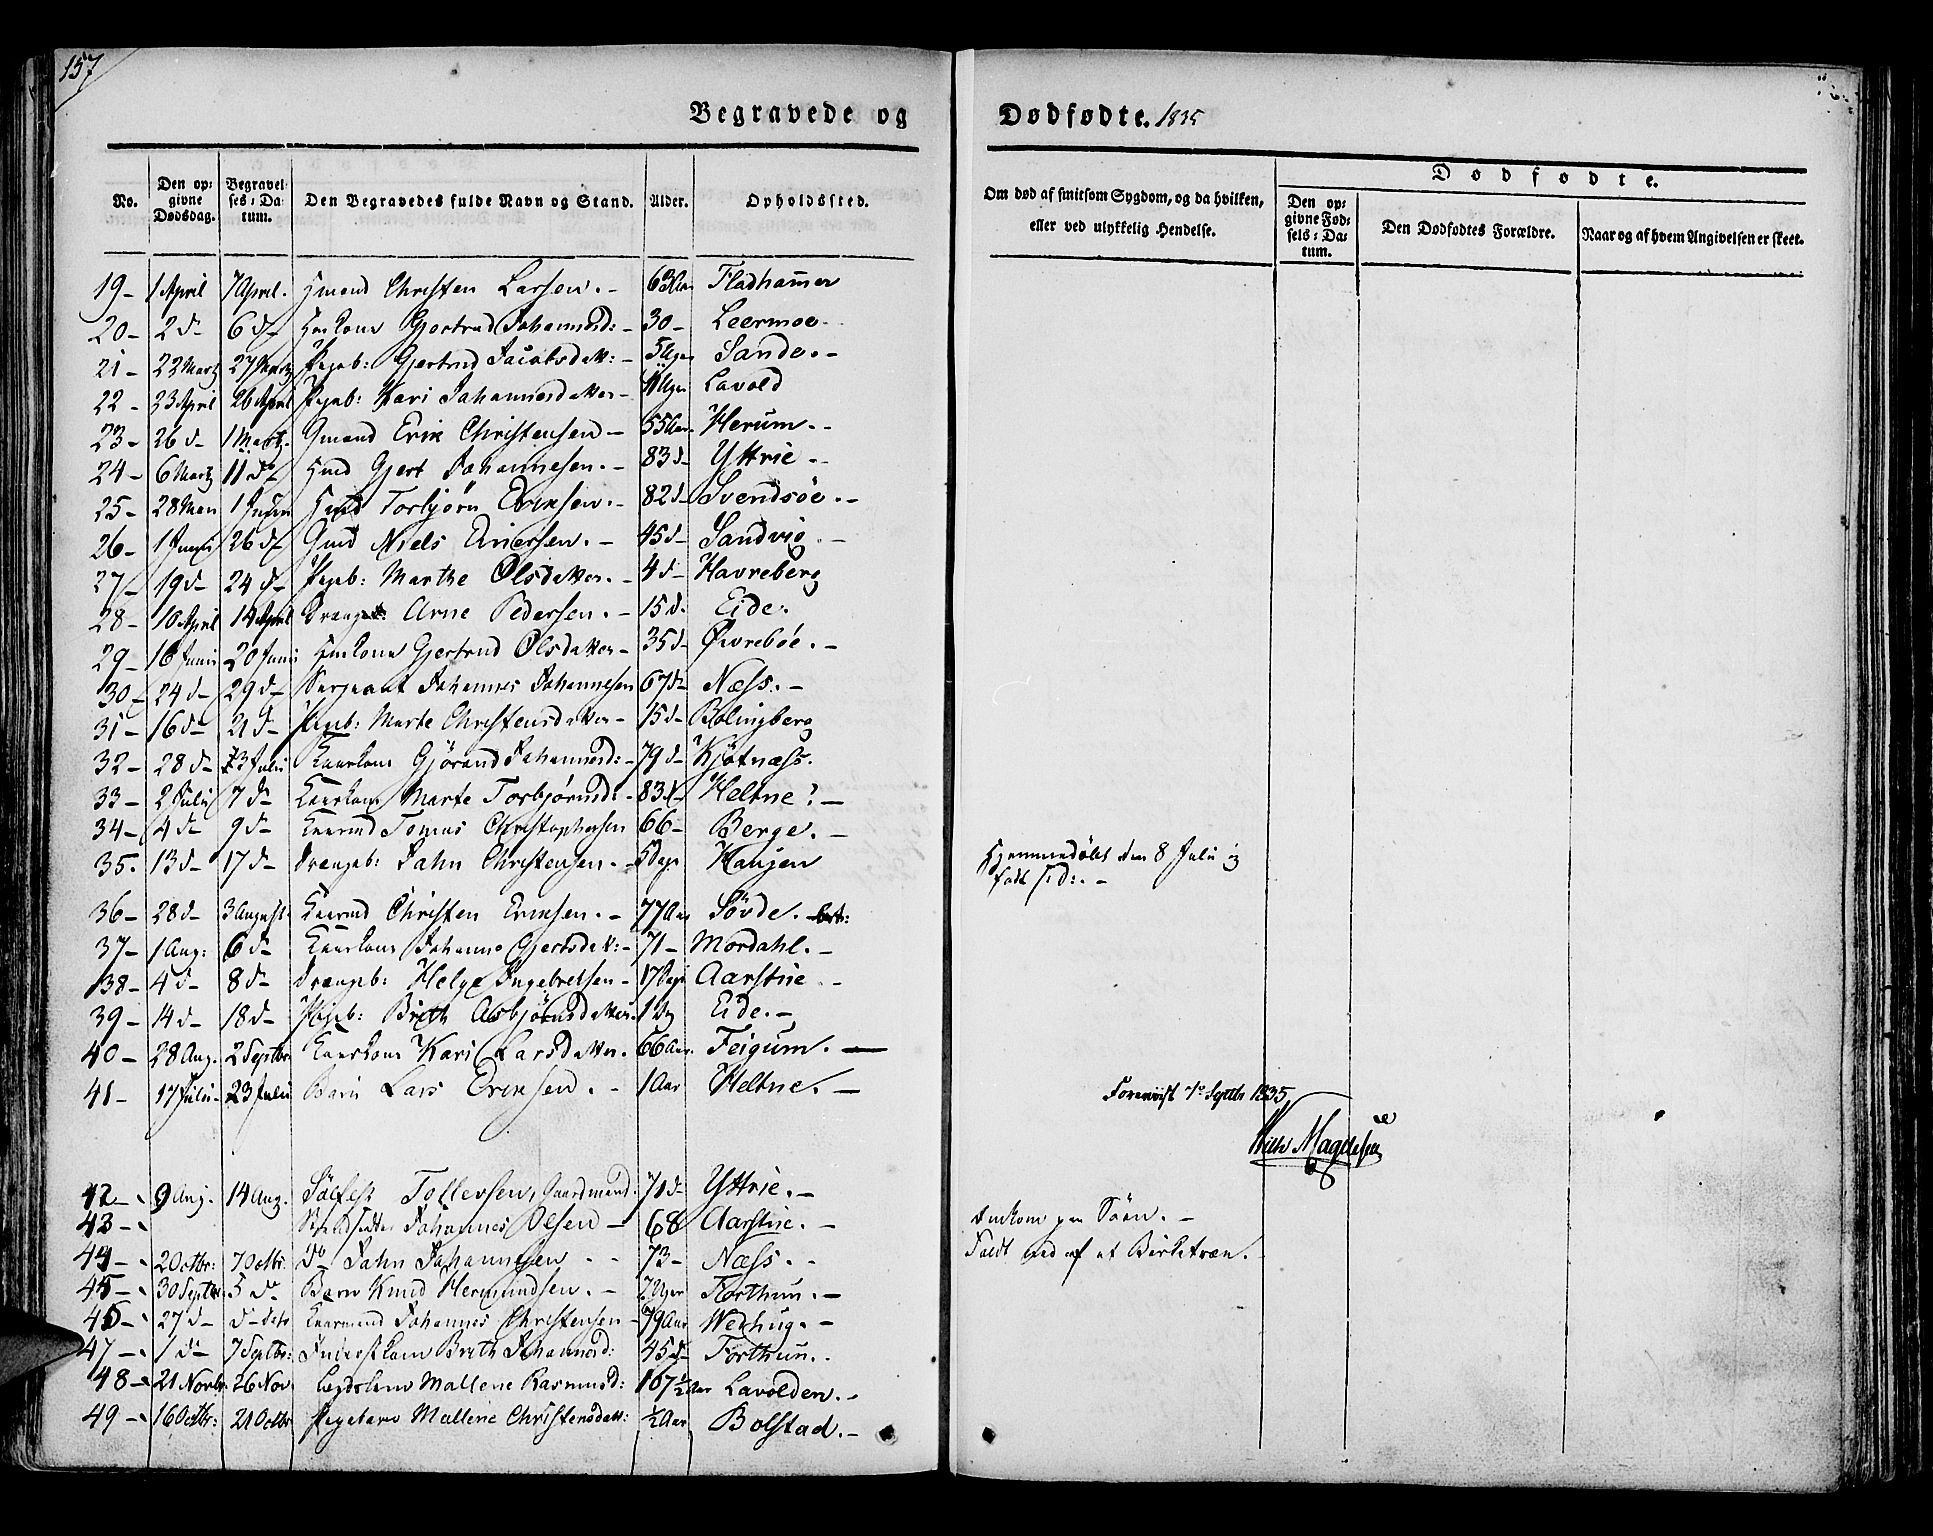 157
Begravede og Dødfødte. 1835
No.
Den opgivne Dødsdag.
Begravelses-Datum.
Den Begravedes fulde Navn og Stand.
Alder.
Opholdssted.
Om død af smitsom Sygdom, og da hvilken, eller ved ulykkelig Hendelse.
Dødfødte.
Den opgivne Fødsels-Datum.
Den Dødfødtes Forældre.
Naar og af hvem Angivelsen er skeet.
19 - 1 April 7 April. Hmand Christen Larsen. - 63 Aar Fladhamer
20 - 2 d - 6 d - Huskone Gjertrud Johannesd: - 30 - Leermoe -
21 - 22 Martz 27 Martz Pigeb: Gjertrud Jacobsdatt: - 5 Uger Sande. -
22 - 23 April 26 April Pigeb: Kari Johannesdatter - 11 Uger Lavold
23 - 26 d - 1 Martz. Gmand Erik Christensen - 55 Aar. Herum. -
24 - 6 Martz 11 d - Hmd Gjert Johannesen. - 83 d - Yttrie -
25 - 28 Mai 1 Junii Hmd Torbjörn Eriksen. - 82 d - Svendsöe. -
26 - 1 Junii 26 d - Gmd Niels Eriksen. - 45 d - Sandvig. -
27 - 19 d - 24 d - Pigeb: Marthe Olsdatter. - 4 d - Havreberg
28 - 10 April 14 April Dreng Arne Pedersen. - 15 d. Eide.
29 - 16 Junii 20 Junii Huskone Gjertrud Olsdatter - 35 d - Øvrebøe. -
30 - 24 d - 29 d - Sergeant Johannes Johannesen 67 d - Næss. -
31 - 16 d - 21 d - Pigeb: Marte Christensdatter - 15 d - Bolingberg
32 - 28 d - 3 Julii Kaarkone Gjörond Johannesd: - 79 d - Kjötnæss.
33 - 2 Julii 7 d - Kaarkone Marte Torbjörnsd: - 83 d - Heltne? -
34 - 4 d - 9 d - Kaarmd Tomas Christophersen 66 - Berge. -
35. 13 d - 17 d - Drengeb: John Christensen. - 5 Dage Haugen Hjemmedöbt den 8 Julii og
födt s: d:. -
36 - 28 d - 3 August. Kaarmd Christen Eriksen. - 77 Aar Sövde.
37 - 1 Aug: 6 d - Kaarkone Johanne Gjertsdatt: - 71 - Mordahl. -
38 - 4 d - 8 d - Drengeb: Helge Ingebretsen - 17 Dage Aarstue -
39 - 14 d - 18 d - Pigeb: Brith Asbjörnsdatter. Eide. -
40 - 28 Aug. 2 Septbr Kaarkone Kari Larsdatter. 66 Aar. Feigum. -
41 - 17 Julii - 23 Julii Barn Lars Eriksen. - 1 Aar Heltne. -
Foreviist 7de Septbr 1835
42 - 9 Aug. 14 Aug. Sölfest Tollevsen, Gaardmand. 71 d - Yttrie. -
43 - Johannes Olsen - 68 Aarstue. - Omkom paa Söen. -
44 - 2 Octbr: 7 Octbr. do John Johannesen - 73 - Næss. - Faldt ned af et Birketræe. -
45 - 30 Septbr. 5 do Barn Knud Hermundsen. - 7 Uger Forthun. -
46 - 27 d - d - dets Kaarmand Johannes Christensen - 79 Aar Wedhug. -
47 - 1 d - 7 Septbr: Inderstkone Brith Johannesd: 45 d - Forthun. -
48 - 21 Novbr. 26 Nov. Mallene Rasmusd: 67 1/2 Aar Lavolden. -
49 - 16 Octbr: 21 Octbr Pigebarn Mallene Christensdatt: 1/2 Aar Bolstad. -